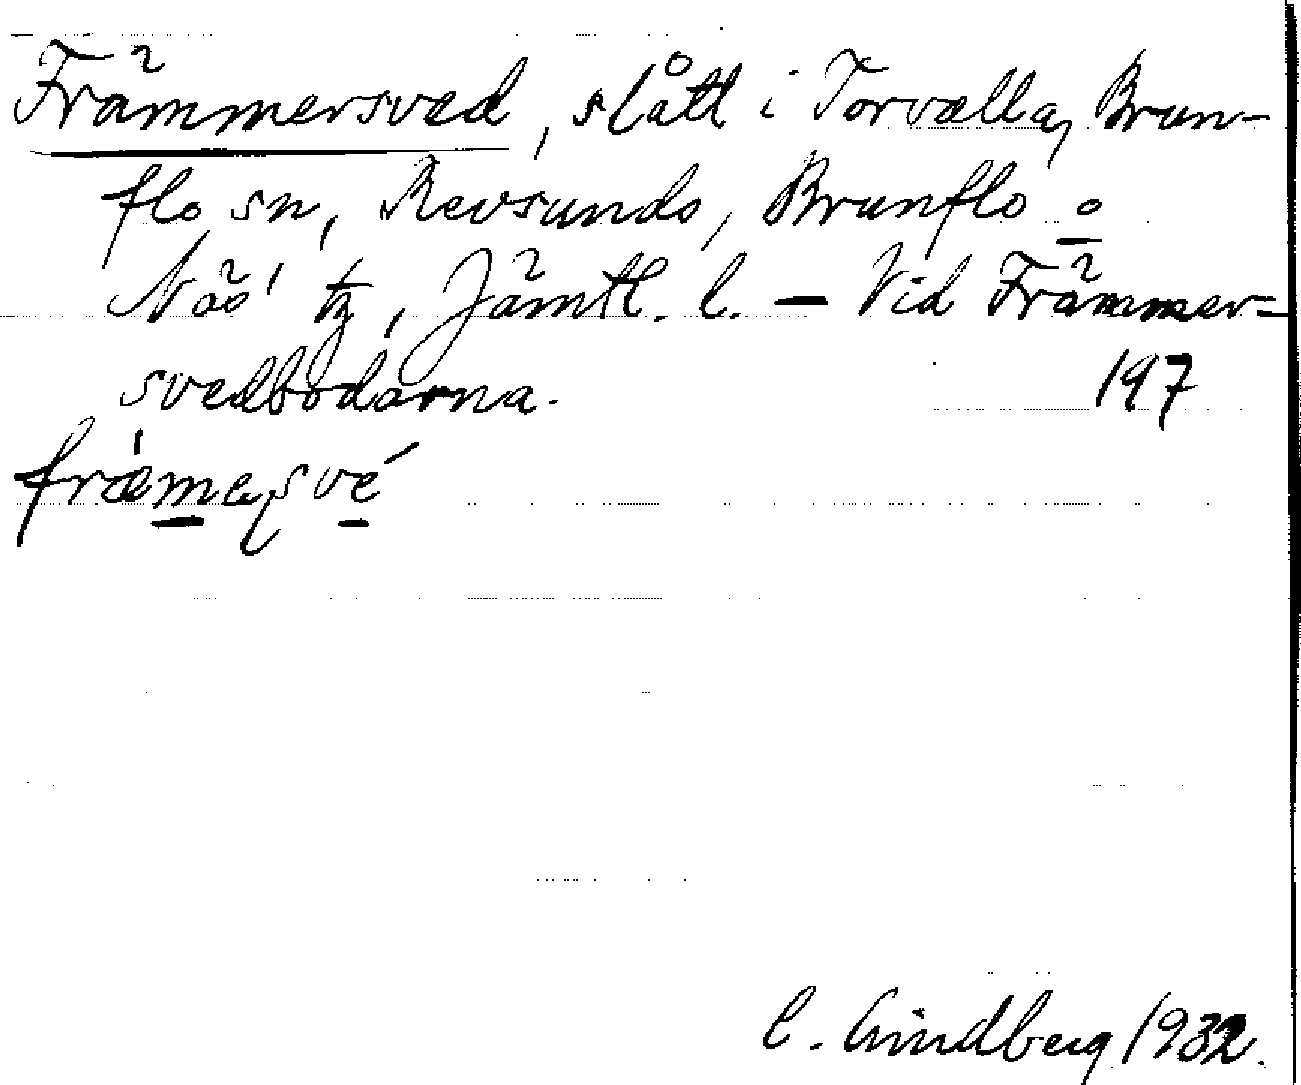 Främmersved, slått i Torvalla, Brun-
flo sn, Revsunds, Brunflo o
Näs' tg, Jämtl. l. — Vid Främmer-
svedbodarna. 197
C. Lindberg 1932.